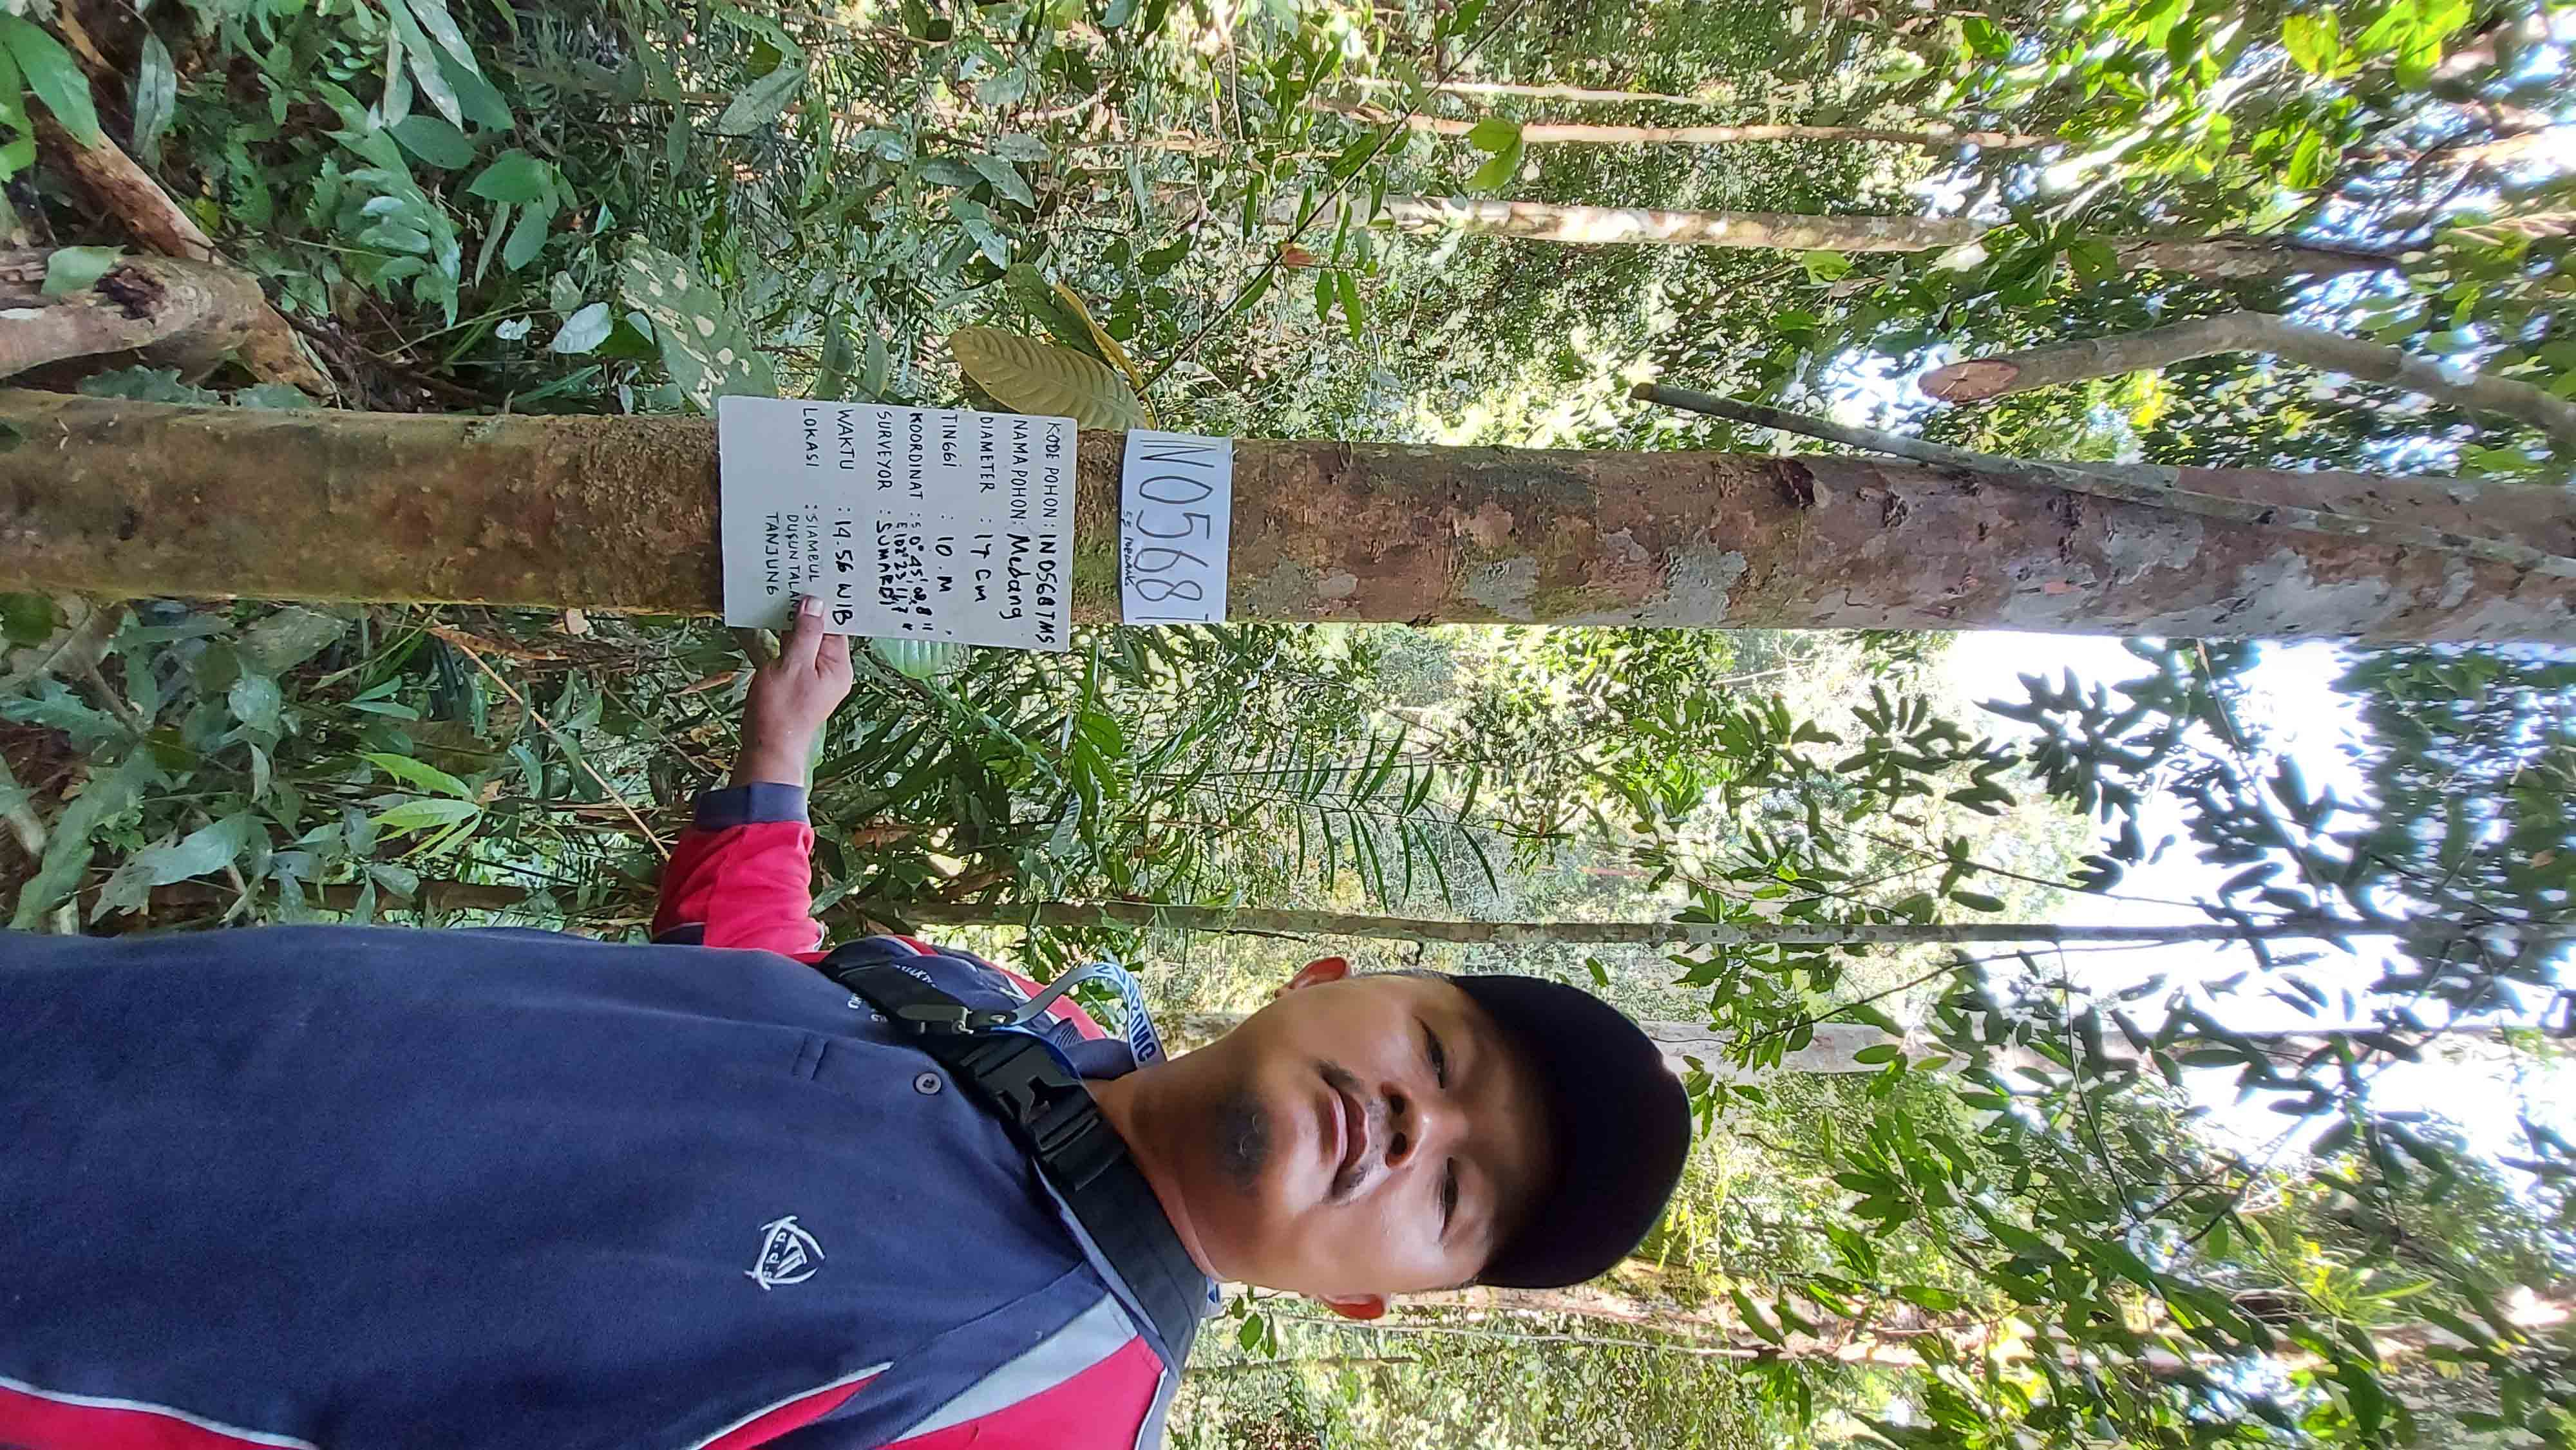 IN0568T
55 MEDANG
KODE POHON : IN0568TMS
NAMA POHON : Medang
DIAMETER : 17 cm
TINGGI : 10 . M
KOORDINAT : S 0° 45' 08,8"
E 102° 23' 11,7"
SURVEYOR : SUMARDI
WAKTU : 14.56 WIB
LOKASI : SIAMBUL
DUSUN TALANG
TANJUNG